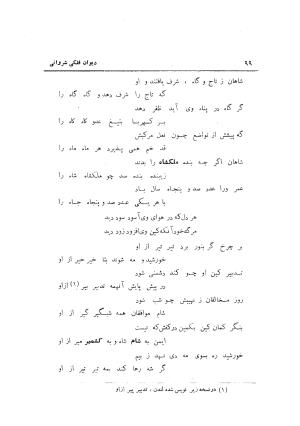 دیوان فلکی شروانی ۶۹
شاهان ز تاج و گاه ، شرف یافتند و او
که تاج را شرف دهد و گاه گاه را
گر گاه در پناه وی آید ظفر دهد
بر کهربا بتیغ عدو کاه کاه را
که پیشش از تواضع چون نعل مرکبش
قد خم همی پذیرد هر ماه ماه را
شاهان اگر چه بنده ملکشاه را بدند
زیبنده بنده سد چو ملکشاه شاه را
عمر ورا عدو صد و پنجاه سال باد
با هر یسکی عدد صد و پنجاه جاه را
هر دل که در هوای وی آسود سود دید
مرگ خود آنکه کین وی افزود زود دید
بر چرخ گر بنور برد تیر تیر از او
خورشید و مه شوند بتا خیر خیر از او
تدبیر کین او چو کند دشمنی شود
در پیش پایش آنهمه تدبیر بیر (۱) ازاو
روز مخالفان ز نهیبش چو شب شود
شام موافقان همه شبگیر گیر از او
بنگر کمان کین بکمین درکش که نیست
ایمن به شام شاه و به کشمیر میر از او
خورشید ره بسوی مه دی نهد ز بیم
گر شه رها کند سه تیر تیر از او
(۱) درنسخه زیر نویس شده لندن ، تدبیر پیر ازاو